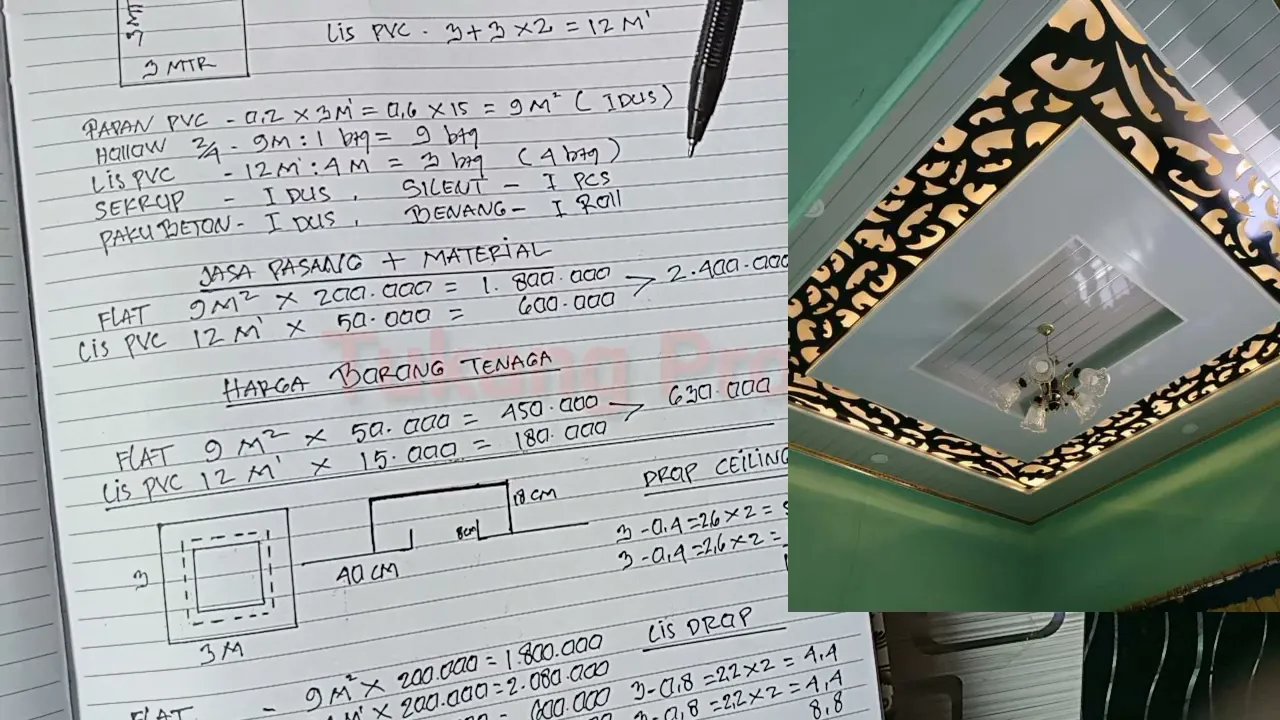 3 MTR
LIS PVC - 3+3 x 2 = 12 M'
PAPAN PVC - 0,2 x 3M' = 0,6 x 15 = 9 M² ( I DUS )
HOLLOW 2/4 - 9M : 1 btg = 9 btg
LIS PVC - 12M' : 4 M' = 3 btg ( 4 btg )
SEKRUP - I DUS , SILENT - I PCS
PAKU BETON - I DUS , BENANG - I ROLL
JASA PASANG + MATERIAL
FLAT 9M² x 200.000 = 1.800.000 > 2.400.000
LIS PVC 12 M' x 50.000 = 600.000
Tukang Pro
HARGA BORONG TENAGA
FLAT 9 M² x 50.000 = 450.000 > 630.000
LIS PVC 12 M' x 15.000 = 180.000
3
3 M
40 CM
8cm
18 CM
DROP CEILING
3 - 0,4 = 2,6 x 2 =
3 - 0,4 = 2,6 x 2 =
FLAT - 9 M² x 200.000 = 1.800.000
M' x 200.000 = 2.080.000
600.000
LIS DROP
3 - 0,8 = 2,2 x 2 = 4,4
3 - 0,8 = 2,2 x 2 = 4,4
8,8